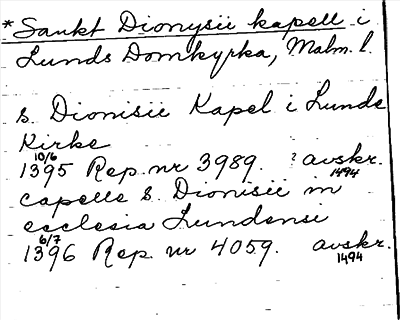 *Sankt Dionysii kapell i
Lunds Domkyrka, Malm. l.
s. Dionisii Kapel i Lunde
Kirke
10/6
1395 Rep. nr 3989. ? avskr.
1494
capelle s. Dionisii in
ecclesia Lundensi
6/7
1396 Rep. nr 4059. avskr.
1494